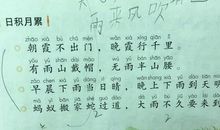 日积月累
雨来风吹
zhāo xiá bù chū mén wǎn xiá xíng qiān lǐ
朝霞不出门，晚霞行千里。
yǒu yǔ shān dài mào wú yǔ bàn shān yāo
有雨山戴帽，无雨半山腰
zǎo chén xià yǔ dāng rì qíng wǎn shang xià yǔ dào tiān míng
早晨下雨当日晴，晚上下雨到天明
mǎ yǐ bān jiā shé guò dào dà yǔ bù jiǔ yào lái
蚂蚁搬家蛇过道，大雨不久要来